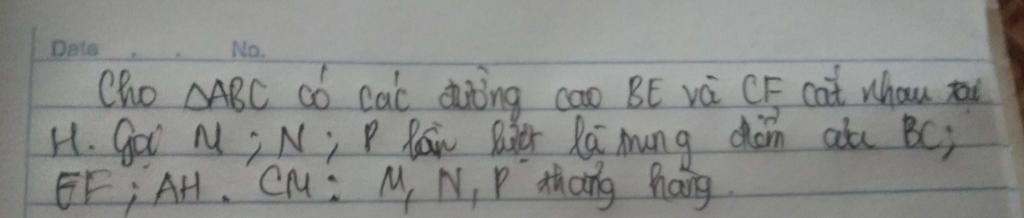 Date . . No.
Cho ΔABC có các đường cao BE và CF cắt nhau tại
H. Gọi M ; N ; P lần lượt là trung điểm của BC;
EF ; AH. CM : M, N, P thẳng hàng.